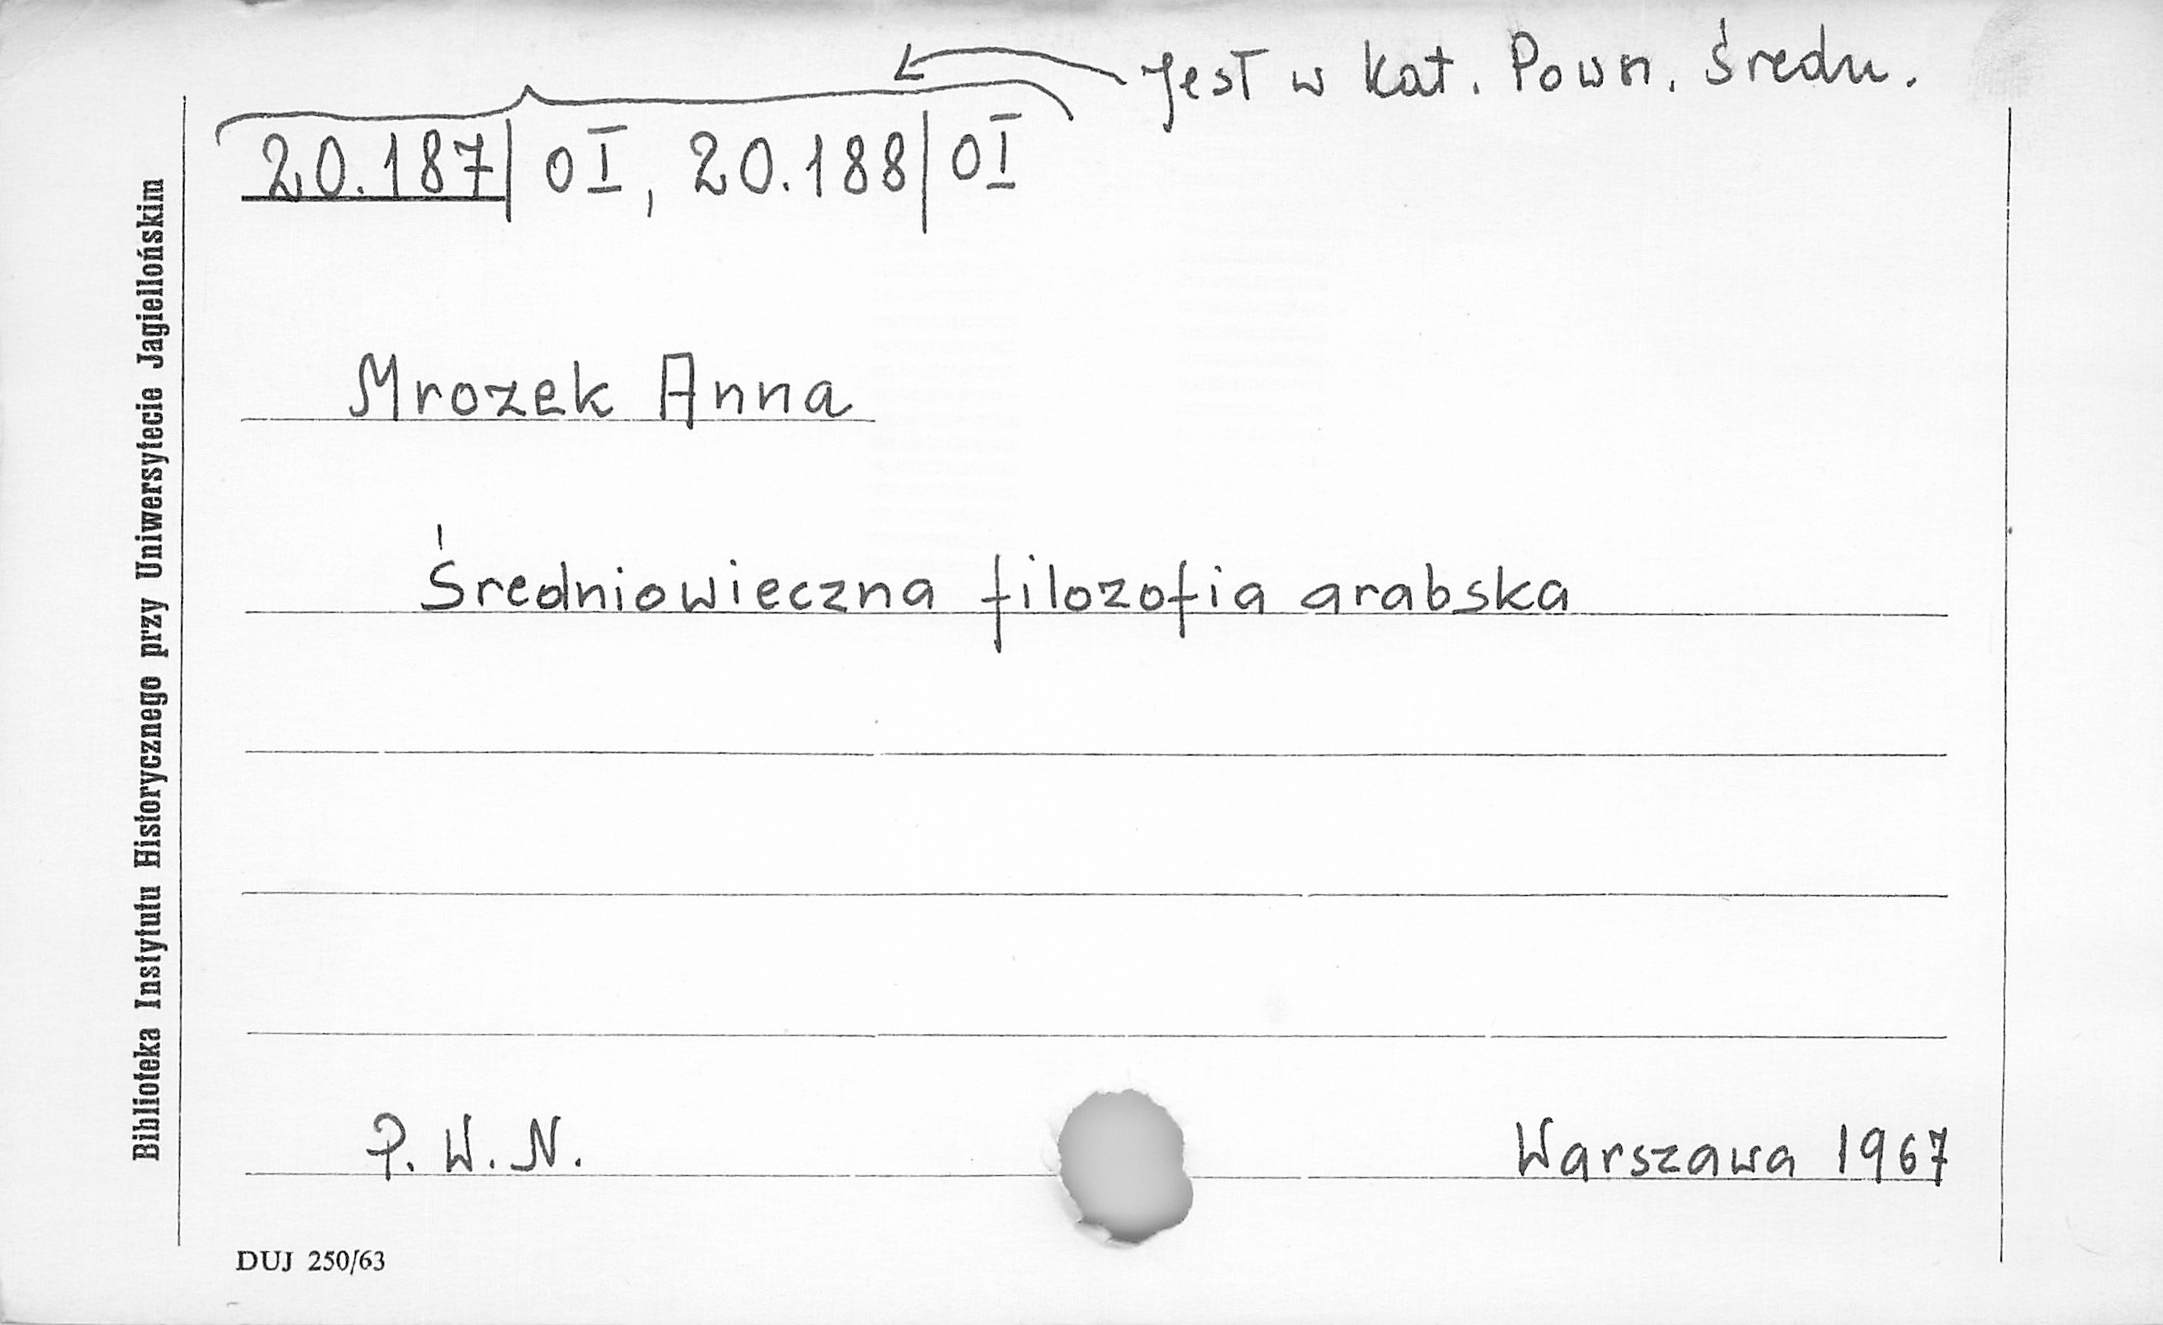 Jest w kat. Pown. Średn.
20.187/ OI, 20.188/ OI
Mrozek Anna
Średniowieczna filozofia arabska
P. W. N.
Warszawa 1967
DUJ 250/63
Biblioteka Instytutu Historycznego przy Uniwersytecie Jagiellońskim